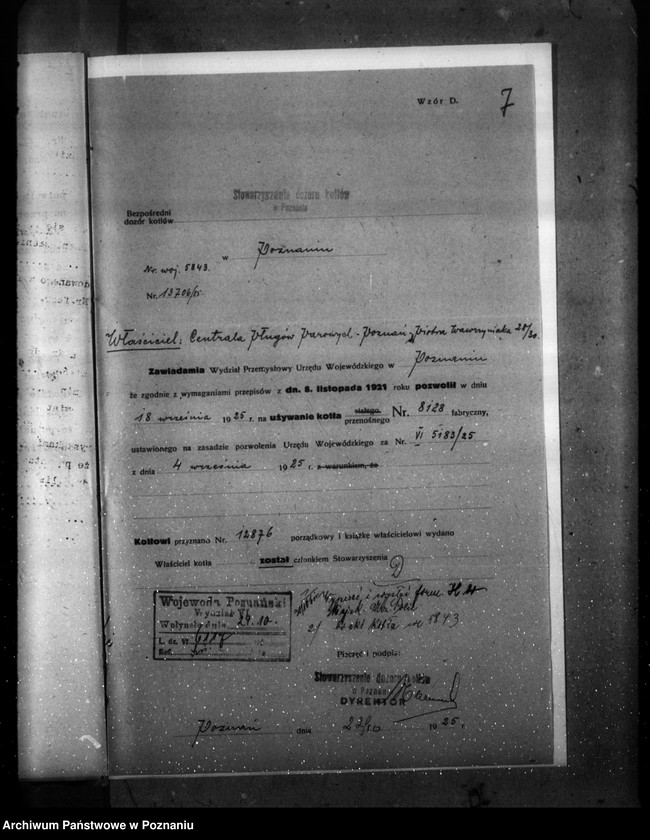 Wzór D.
7
Stowarzyszenie dozoru kotłów
w Poznaniu
Bezpośredni
dozór kotłów
w Poznaniu
Nr. woj. 5843.
Nr. 13706/25.
Właściciel: Centrala Pługów Parowych - Poznań, Piotra Wawrzyniaka 28/30
Zawiadamia Wydział Przemysłowy Urzędu Wojewódzkiego w Poznaniu
że zgodnie z wymaganiami przepisów z dn. 8. listopada 1921 roku pozwolił w dniu
18 września 1925 r. na używanie kotła stałego, przenośnego Nr. 8128 fabryczny,
ustawionego na zasadzie pozwolenia Urzędu Wojewódzkiego za Nr. VI 5183/25
z dnia 4 września 1925 r. z warunkiem, że
Kotłowi przyznano Nr. 12876 porządkowy i książkę właścicielowi wydano
Właściciel kotła został członkiem Stowarzyszenia
D
Wojewoda Poznański
Wydział VI
Wpłynęło dnia 29.10.
L. dz. VI
Ref.
2/ kotła 5843
Pieczęć i podpis:
Stowarzyszenie dozoru kotłów
w Poznaniu
DYREKTOR
Poznań dnia 27/10 1925 r.
Archiwum Państwowe w Poznaniu